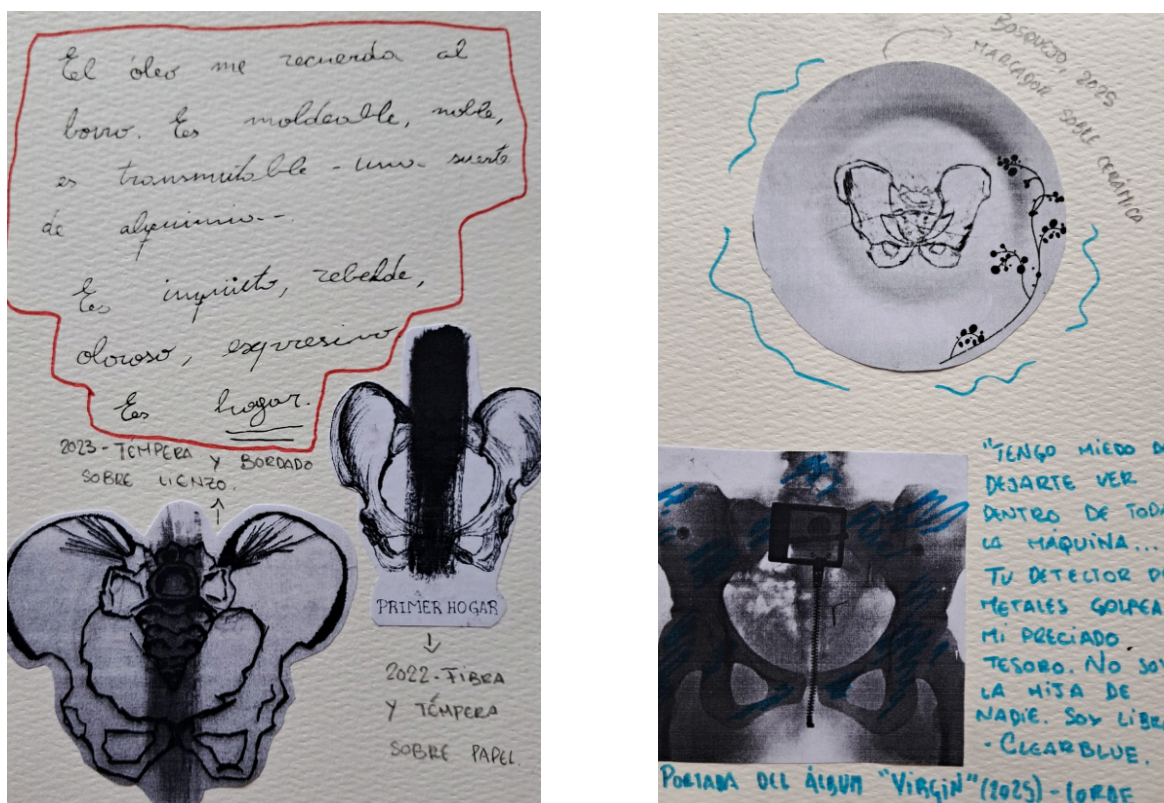 El óleo me recuerda al
barro. Es moldeable, noble,
es transmutable - una suerte
de alquimia-.
Es inquieto, rebelde,
oloroso, expresivo
Es hogar.
2023-TÉMPERA Y BORDADO
SOBRE LIENZO.
PRIMER HOGAR
2022-FIBRA
Y TÉMPERA
SOBRE PAPEL.
BOSQUEJO, 2025
MARCADOR SOBRE CERÁMICA
"TENGO MIEDO DE
DEJARTE VER
DENTRO DE TODA
LA MÁQUINA...
TU DETECTOR DE
METALES GOLPEA
MI PRECIADO
TESORO. NO SOY
LA HIJA DE
NADIE. SOY LIBRE
- CLEARBLUE.
PORTADA DEL ÁLBUM "VIRGIN" (2025) - LORDE